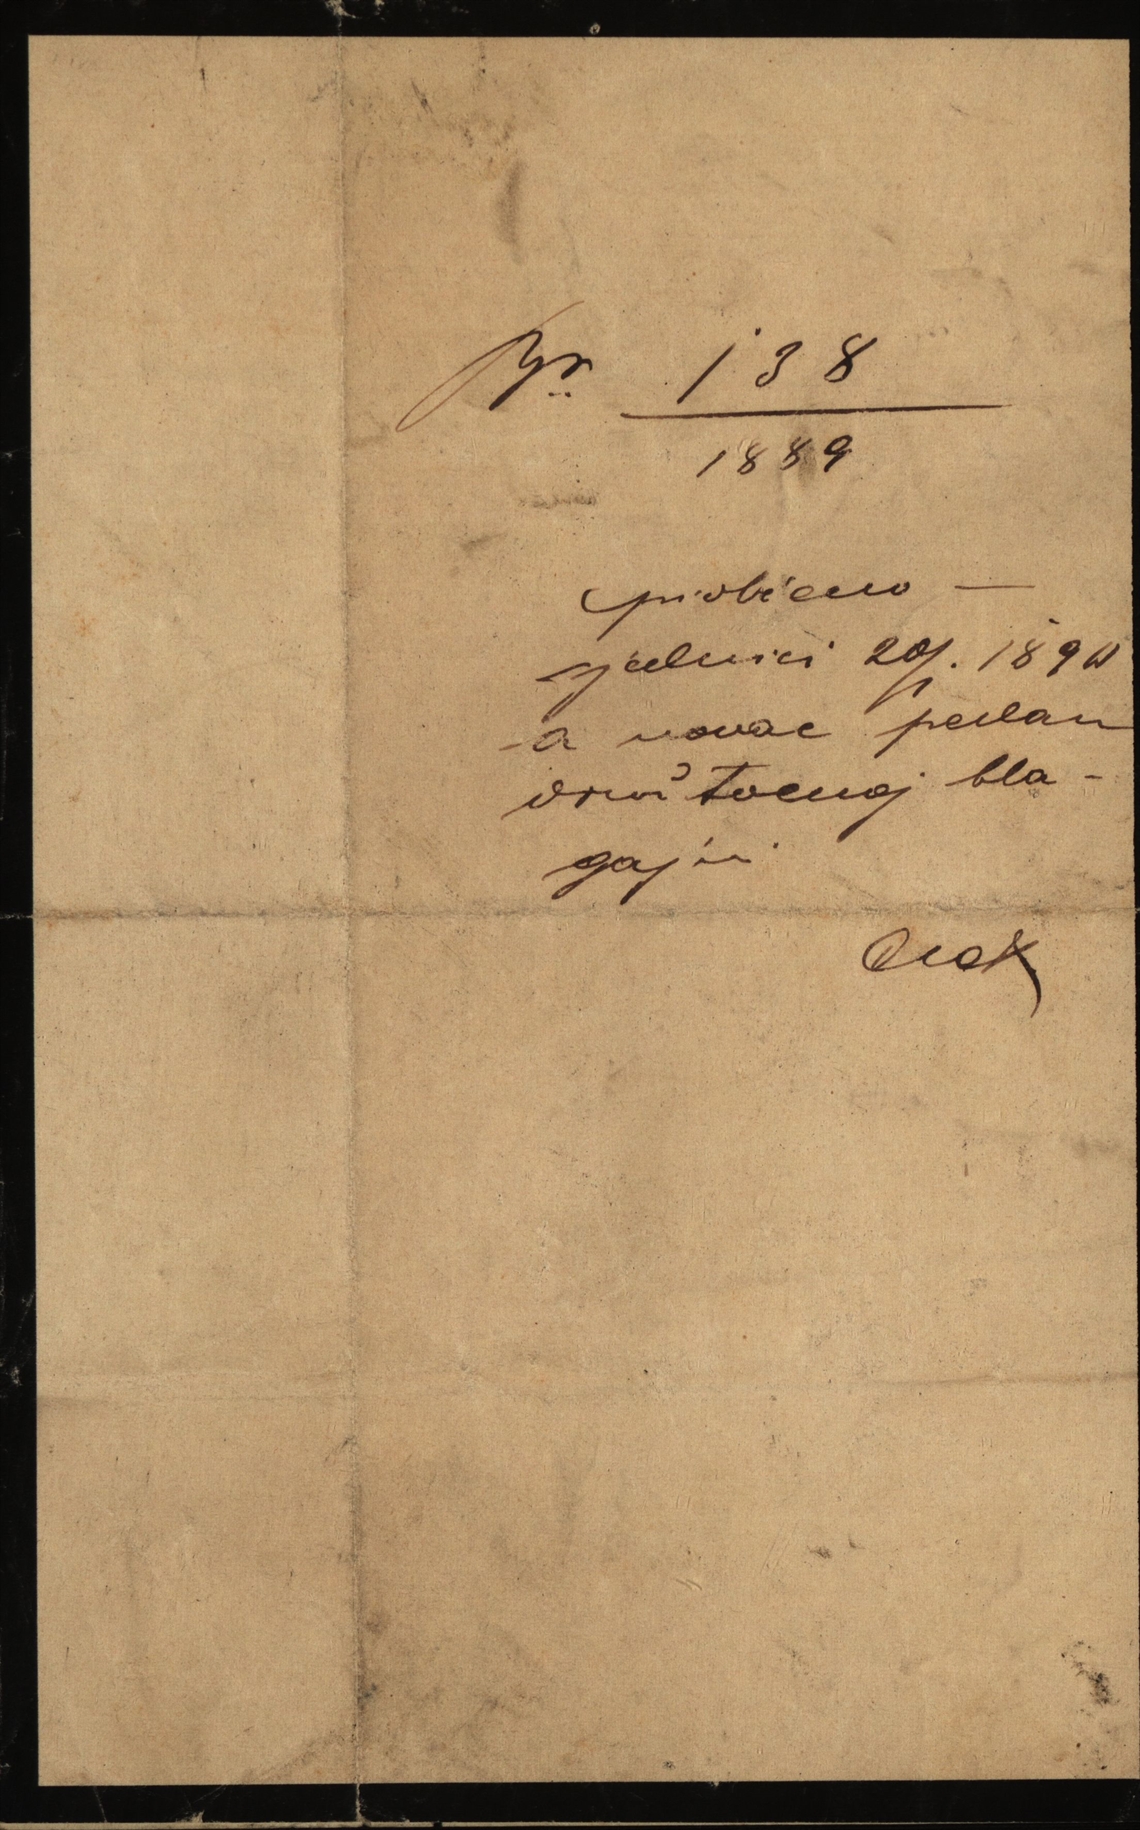 Br. 138
1889
priobćeno —
sjednici 20/. 1890
a novac predan
društvenoj bla-
gajni